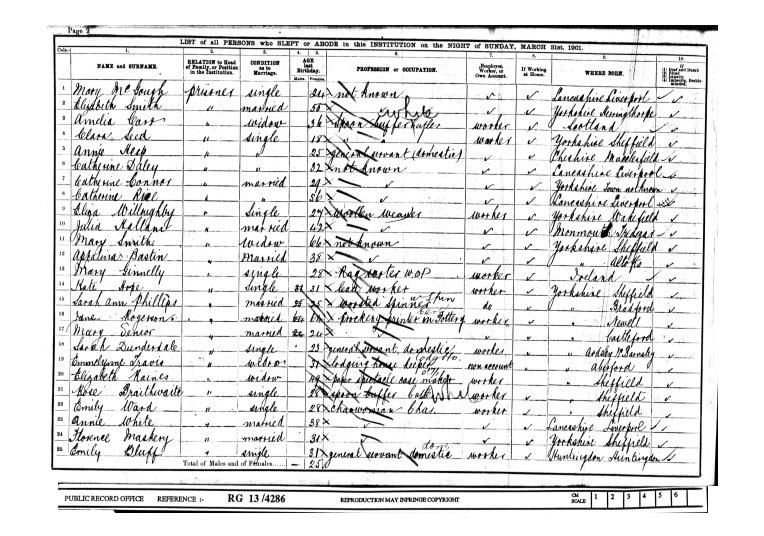 Page 2
LIST of all PERSONS who SLEPT or ABODE in this INSTITUTION on the NIGHT of SUNDAY, MARCH 31st, 1901.
1. 2. 3. 4. 5. 6. 7. 8. 9. 10.
NAME and SURNAME. RELATION to Head of Family, or Position in the Institution. CONDITION as to Marriage. AGE last Birthday. Males. Females. PROFESSION or OCCUPATION. Employer, Worker, or Own Account. If Working at Home. WHERE BORN. If (1) Deaf and Dumb (2) Blind (3) Lunatic (4) Imbecile, feeble-minded.
1 Mary Mc Gough prisoner single not known Lancashire Liverpool
2 Elizabeth Smith " married 50 Yorkshire
3 Amelia Carr " widow 36 spoon buffer worker Scotland
4 Clara Seed " single 18 " worker Yorkshire Sheffield
5 Annie " " 25 general servant (domestic) Cheshire Macclesfield
6 Catherine Daley " " 32 not known Lancashire Liverpool
7 Catherine Connor " married 29 Yorkshire town not known
8 Catherine " " 36 Lancashire Liverpool
9 Eliza Willoughby " single 27 woollen weaver worker Yorkshire Wakefield
10 Julia Hallam " married 42 Monmouth Tredegar
11 Mary Smith " widow 66 not known Yorkshire Sheffield
12 Bastin " married 38 " Altofts
13 Mary Ginnelly " single 28 Rag sorter worker Ireland
14 Kate Hope " single 31 worker Yorkshire Sheffield
15 Sarah Ann Phillips " married 25 worsted spinner do " Bradford
16 Jane Rogerson " married crockery printer in Pottery worker "
17 Mary Senior " married 24 " Castleford
18 Sarah Dunderdale " single 23 general servant, domestic worker " Ardsley Nr Barnsley
19 Emmelynne Travis " widow 51 lodging house keeper own account "
20 Elizabeth Raines " widow 49 spectacle case maker worker " Sheffield
21 Rose Braithwaite " single 28 spoon buffer worker " Sheffield
22 Emily Ward " single 28 Charwoman worker " Sheffield
23 Annie White " married 38 Lancashire Liverpool
24 Florence Maskery " married 31 Yorkshire Sheffield
25 Emily Bluff " single 21 general servant domestic worker Huntingdon Huntingdon
Total of Males and of Females... — 25
PUBLIC RECORD OFFICE REFERENCE :- RG 13/4286 REPRODUCTION MAY INFRINGE COPYRIGHT CM SCALE 1 2 3 4 5 6